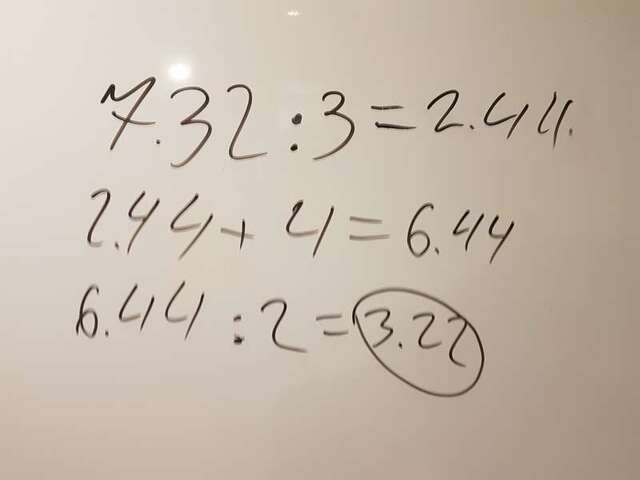 7.32 : 3 = 2.44.
2.44 + 4 = 6.44
6.44 : 2 = 3.22